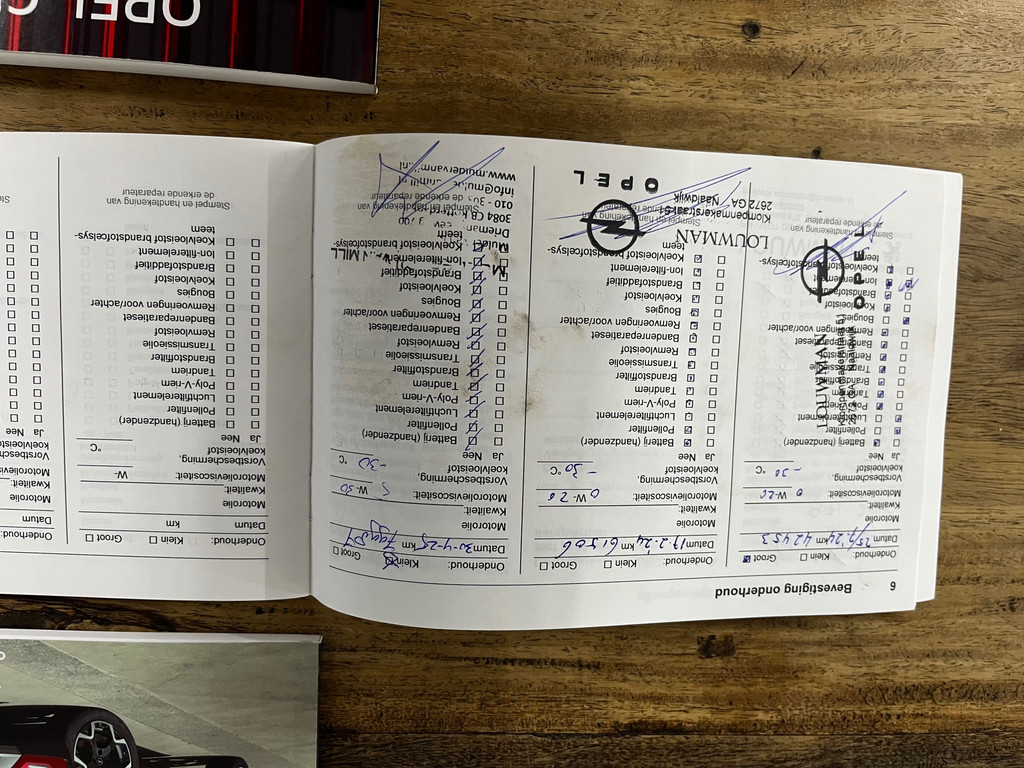 OPEL
6 Bevestiging onderhoud
Onderhoud: Klein Groot
Datum 25/2/24 km 42453
Motorolie
Kwaliteit:
Motorolieviscositeit: 0 W-20
Vorstbescherming,
koelvloeistof -30 °C
Ja Nee
Batterij (handzender)
Pollenfilter
Luchtfilterelement
Poly-V-riem
Tandriem
Brandstoffilter
Transmissieolie
Remvloeistof
Bandenreparatieset
Remvoeringen voor/achter
Bougies
Koelvloeistof
Brandstofadditief
Ion-filterelement
Koelvloeistof brandstofcelsys-
teem
LOUWMAN
OPEL
Onderhoud: Klein Groot
Datum 19-2-24 km 61506
Motorolie
Kwaliteit:
Motorolieviscositeit: 0 W-20
Vorstbescherming,
koelvloeistof -30 °C
Ja Nee
Batterij (handzender)
Pollenfilter
Luchtfilterelement
Poly-V-riem
Tandriem
Brandstoffilter
Transmissieolie
Remvloeistof
Bandenreparatieset
Remvoeringen voor/achter
Bougies
Koelvloeistof
Brandstofadditief
Ion-filterelement
Koelvloeistof brandstofcelsys-
teem
LOUWMAN
Klompenmakerstraat 51
2672 GA Naaldwijk
OPEL
Onderhoud: Klein Groot
Datum 30-4-25 km
Motorolie
Kwaliteit:
Motorolieviscositeit: 5 W-30
Vorstbescherming,
koelvloeistof -30 °C
Ja Nee
Batterij (handzender)
Pollenfilter
Luchtfilterelement
Poly-V-riem
Tandriem
Brandstoffilter
Transmissieolie
Remvloeistof
Bandenreparatieset
Remvoeringen voor/achter
Bougies
Koelvloeistof
Brandstofadditief
Ion-filterelement
Koelvloeistof brandstofcelsys-
teem
Stempel en handtekening van
de erkende reparateur
Onderhoud: Klein Groot
Datum km
Motorolie
Kwaliteit:
Motorolieviscositeit: W-
Vorstbescherming,
koelvloeistof °C
Ja Nee
Batterij (handzender)
Pollenfilter
Luchtfilterelement
Poly-V-riem
Tandriem
Brandstoffilter
Transmissieolie
Remvloeistof
Bandenreparatieset
Remvoeringen voor/achter
Bougies
Koelvloeistof
Brandstofadditief
Ion-filterelement
Koelvloeistof brandstofcelsys-
teem
Stempel en handtekening van
de erkende reparateur
Onderhoud:
Datum
Motorolie
Kwaliteit:
Ja